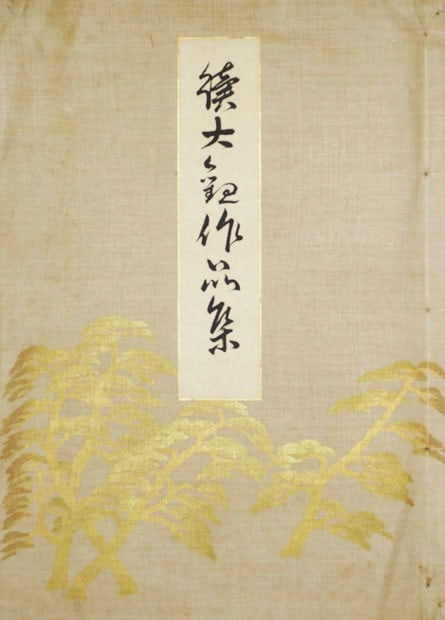 續大観作品集